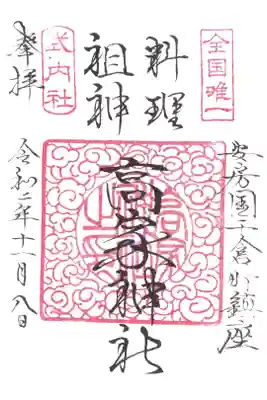 全国唯一
安房國千倉町鎮座
料理
祖神
高家神社
式内社
奉拝
令和二年十一月八日